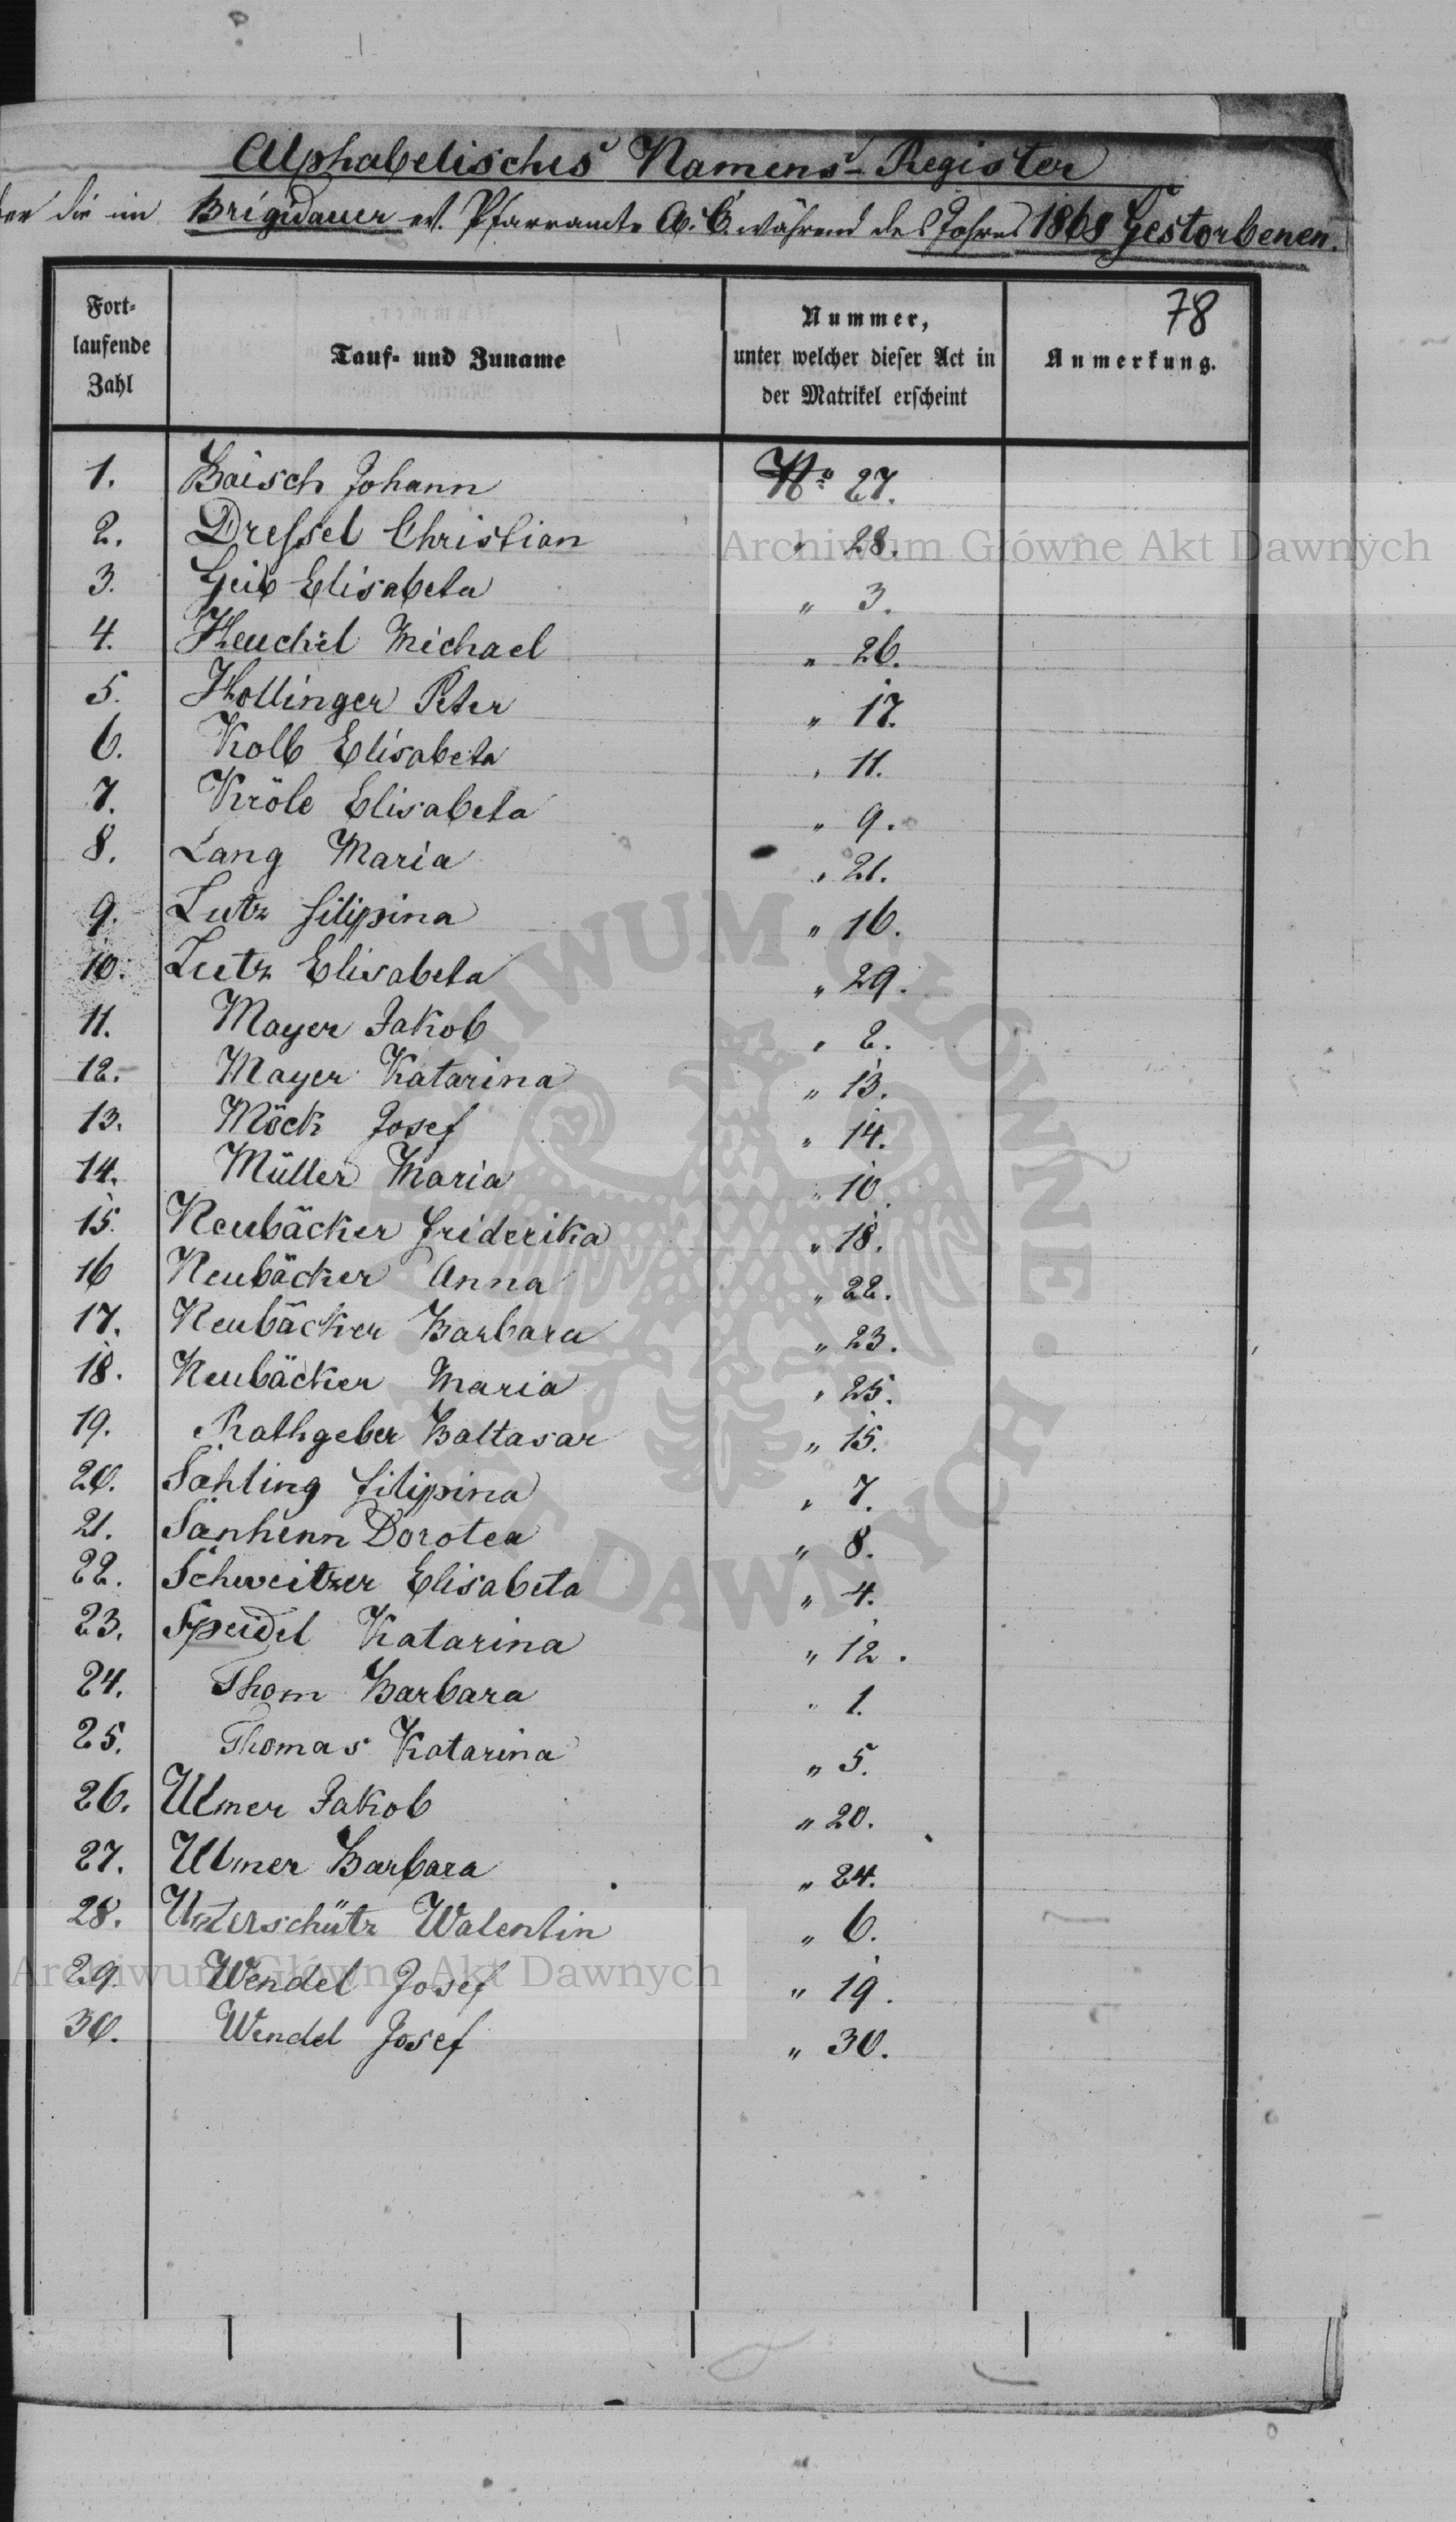 Alphabetisches Namens-Register
über die im Brigidauer ev. Pfarramte A. C. während des Jahres 1868 Gestorbenen.
78
Fort-
laufende
Zahl
Tauf- und Zuname
Nummer,
unter welcher dieser Act in
der Matrikel erscheint
Anmerkung.
1. Baisch Johann No 27.
2. Dreſsel Christian " 28.
3. Geib Elisabeta " 3.
4. Heuchel Michael " 26.
5. Hollinger Peter " 17.
6. Kolb Elisabeta " 11.
7. Kröle Elisabeta " 9.
8. Lang Maria " 21.
9. Lutz Filipina " 16.
10. Lutz Elisabeta " 29.
11. Mayer Jakob " 2.
12. Mayer Katarina " 13.
13. Möck Josef " 14.
14. Müller Maria " 10.
15. Neubäcker Friderika " 18.
16 Neubäcker Anna " 22.
17. Neubäcker Barbara " 23.
18. Neubäcker Maria " 25.
19. Rathgeber Baltasar " 15.
20. Sahling Filipina " 7.
21. Sänhenn Dorotea " 8.
22. Schweitzer Elisabeta " 4.
23. Speidel Katarina " 12.
24. Thom Barbara " 1.
25. Thomas Katarina " 5.
26. Ulmer Jakob " 20.
27. Ulmer Barbara " 24.
28. Unterschütz Walentin " 6.
29. Wendel Josef " 19.
30. Wendel Josef " 30.
Archiwum Główne Akt Dawnych
ARCHIWUM GŁÓWNE · AKT DAWNYCH ·
Archiwum Główne Akt Dawnych